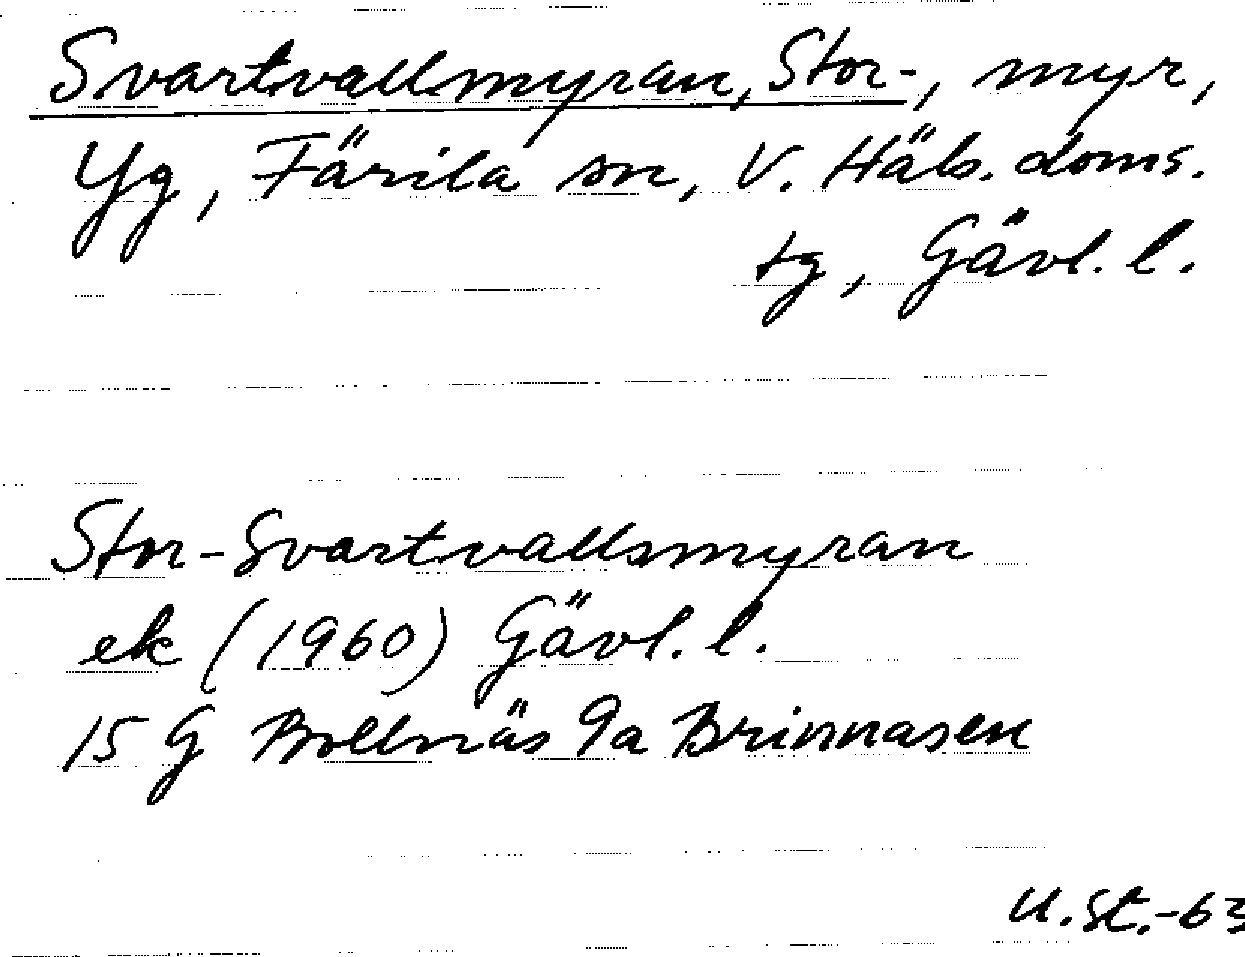 Svartvallmyran, Stor-, myr,
Yg, Färila sn, V. Häls. doms.
tg, Gävl. l.
Stor-Svartvallsmyran
ek (1960) Gävl. l.
15 G Bollnäs 9a Brinnåsen
U. St. -63